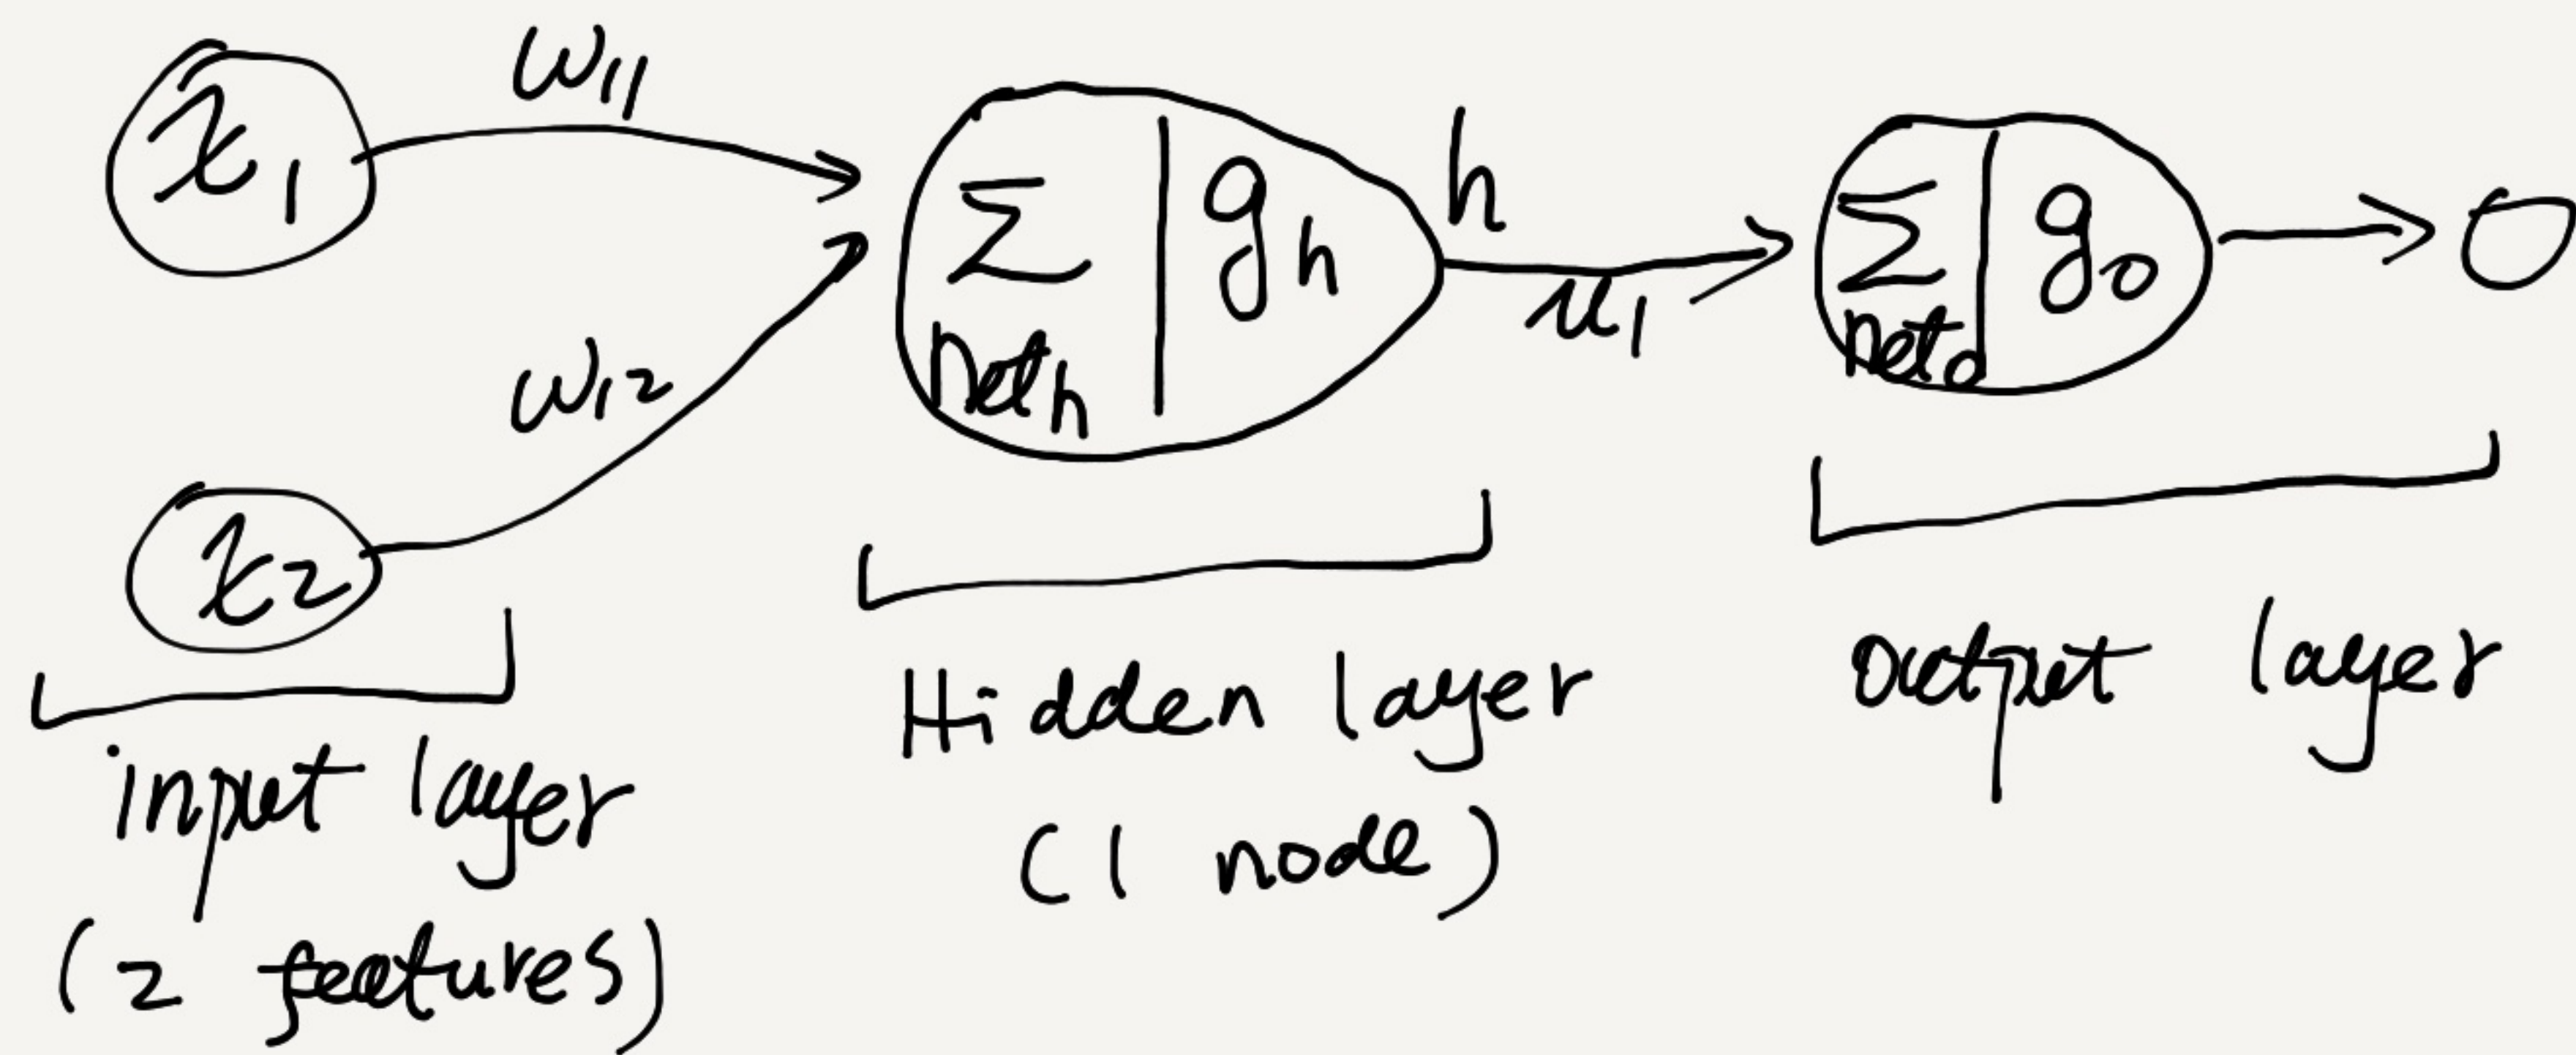 x₁
w₁₁
w₁₂
x₂
Σ
net_h
g_h
h
u₁
Σ
net_o
g_o
o
input layer
(2 features)
Hidden layer
(1 node)
output layer